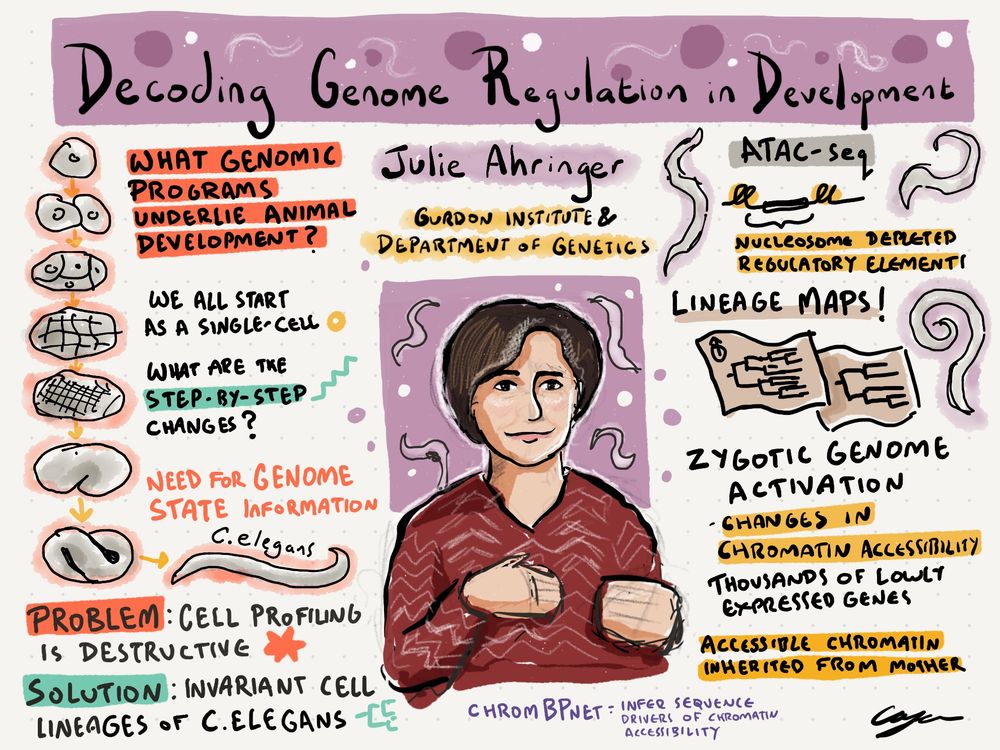 Decoding Genome Regulation in Development
WHAT GENOMIC
PROGRAMS
UNDERLIE ANIMAL
DEVELOPMENT?
WE ALL START
AS A SINGLE-CELL
WHAT ARE THE
STEP-BY-STEP
CHANGES?
NEED FOR GENOME
STATE INFORMATION
C.elegans
PROBLEM: CELL PROFILING
IS DESTRUCTIVE
SOLUTION: INVARIANT CELL
LINEAGES OF C.ELEGANS
Julie Ahringer
GURDON INSTITUTE &
DEPARTMENT OF GENETICS
CHROMBPNET: INFER SEQUENCE
DRIVERS OF CHROMATIN
ACCESSIBILITY
ATAC-seq
NUCLEOSOME DEPLETED
REGULATORY ELEMENT!
LINEAGE MAPS!
ZYGOTIC GENOME
ACTIVATION
- CHANGES IN
CHROMATIN ACCESSIBILITY
THOUSANDS OF LOWLY
EXPRESSED GENES
ACCESSIBLE CHROMATIN
INHERITED FROM MOTHER